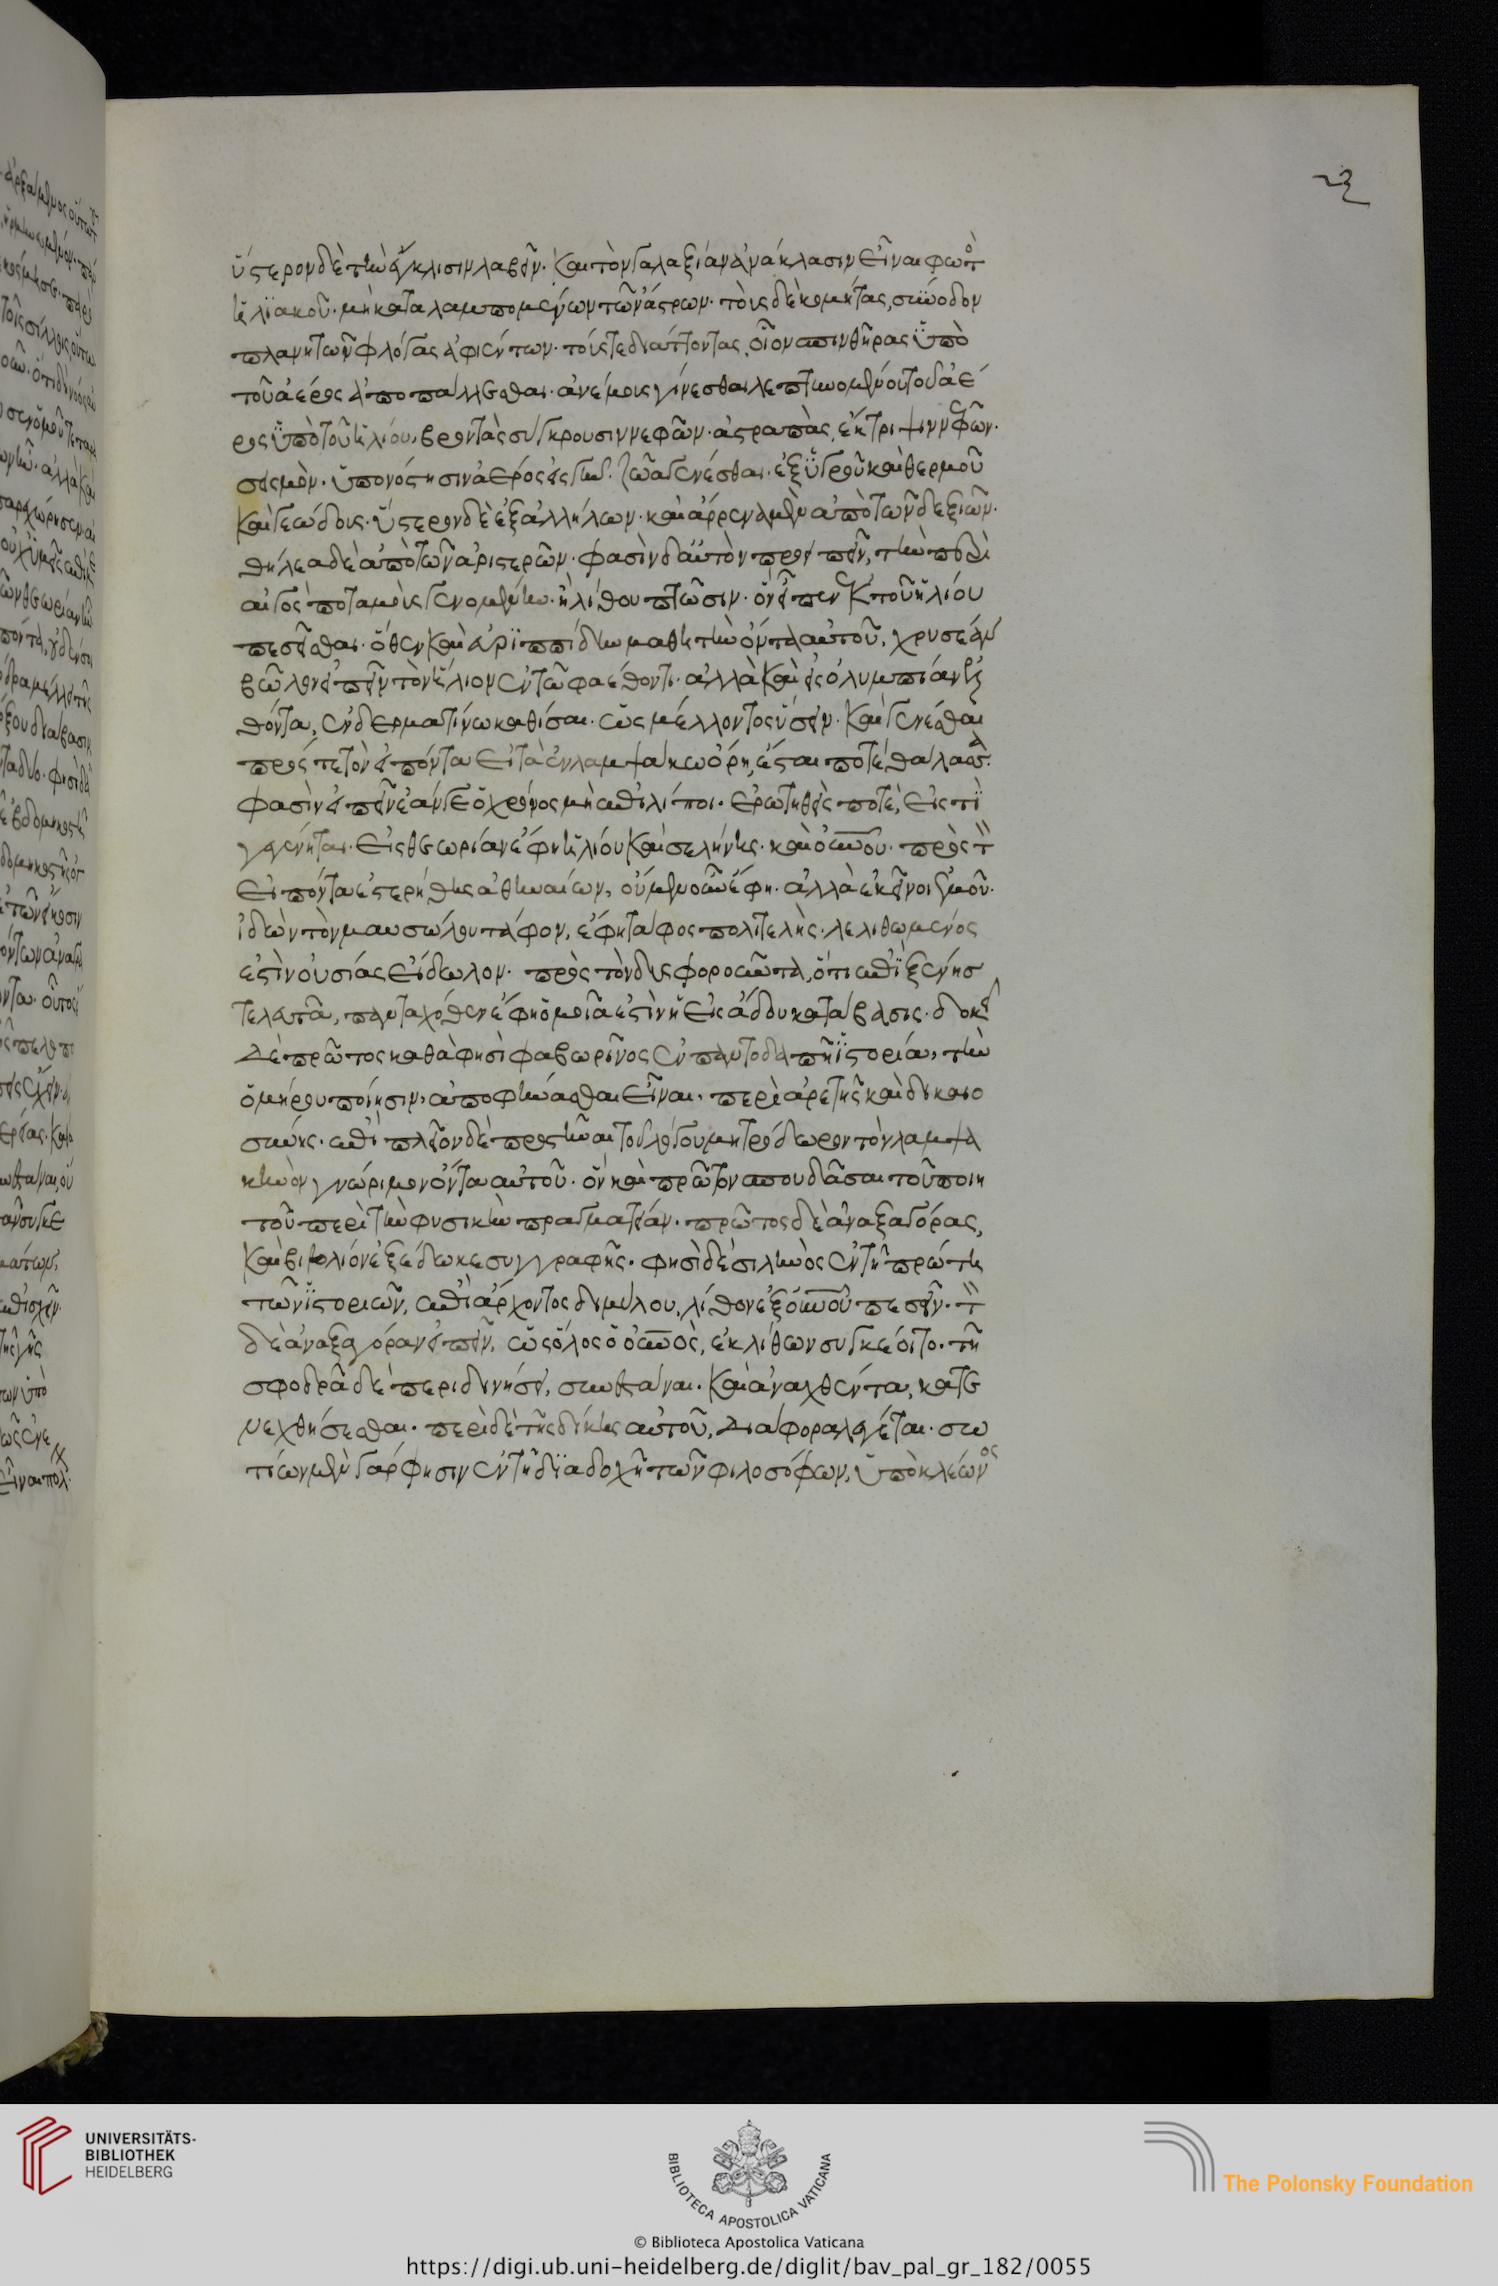 ὕστερον δὲ τὴν ἔγκλισιν λαβεῖν. καὶ τὸν γαλαξίαν ἀνάκλασιν εἶναι φωτὸς
ἡλϊακοῦ. μὴ καταλαμπομένων τῶν ἄστρων. τοὺς δὲ κομήτας, σύνοδον
πλανητῶν φλόγας ἀφιέντων. τούς τε διάττοντας, οἷον σπινθῆρας ὑπὸ
τοῦ ἀέρος ἀποπάλλεσθαι. ἀνέμους γίνεσθαι λεπτυνομένου τοῦ ἀέ
ρος ὑπὸ τοῦ ἡλίου, βροντὰς σύγκρουσιν νεφῶν. ἀστραπὰς, ἔκτριψιν νεφῶν.
σεισμὸν. ὑπονόστησιν ἀέρος εἰς γῆν. ζῶα γενέσθαι. ἐξ ὑγροῦ καὶ θερμοῦ
καὶ γεώδους. ὕστερον δὲ ἐξ ἀλλήλων. καὶ ἄρρενα μὲν ἀπὸ τῶν δεξιῶν.
θήλεα δὲ ἀπὸ τῶν ἀριστερῶν. φασὶν δ' αὐτὸν προειπεῖν, τὴν περὶ
αἰγὸς ποταμοὺς γενομένην. ἡλίθου πτῶσιν. ὃν εἶπεν ἐκ τοῦ ἡλίου
πεσεῖσθαι. ὅθεν καὶ εὐριππίδην μαθητὴν ὄντα αὐτοῦ, χρυσέαν
βῶλον εἰπεῖν τὸν ἥλιον ἐν τῶ φαέθοντι. ἀλλὰ καὶ εἰς ὀλυμπίαν ἐλ
θόντα, ἐν δερματίνω καθίσαι. ὡς μέλλοντος ὕσειν. καὶ γενέσθαι
πρός τε τὸν εἰπόντα εἰ τὰ ἐν λαμψάκω ὄρη, ἔσται ποτέ, θάλασσα.
φασὶν εἰπεῖν ἐάν γε ὁ χρόνος μὴ ἐπιλίποι. ἐρωτηθεὶς ποτὲ, εἰς τί
γεγένηται. εἰς θεωρίαν ἔφη ἡλίου καὶ σελήνης. καὶ οὐνου. πρὸς τὸν
εἰπόντα ἐστερήθης ἀθηναίων, οὐ μὲν οὖν ἔφη. ἀλλὰ ἐκεῖνοι ἐμοῦ.
ἰδὼν τὸν μαυσώλου τάφον, ἔφη τάφος πολιτελὴς. λελιθωμένος
ἐστὶν οὐσίας εἴδωλον. πρὸς τὸν δυσφοροῦντα, ὅτι ἐπὶ ξένης
τελευτᾶ, πανταχόθεν ἔφη ὁμοία ἐστὶν ἡ εἰς ἅδου κατάβασις. δοκεῖ
δὲ πρῶτος καθὰ φησὶ φαβωρῖνος ἐν παντοδαπῆ ἱστορία, τὴν
ὁμήρου ποίησιν, ἀποφήνασθαι εἶναι. περὶ ἀρετῆς καὶ δικαιο
σύνης. ἐπὶ πλεῖον δὲ προστῆναι τοῦ λόγου μητρόδωρον τὸν λαμψα
κηνὸν γνώριμον ὄντα αὐτοῦ. ὃν καὶ πρῶτον σπουδᾶσαι τοῦ ποιη
τοῦ περὶ τὴν φυσικὴν πραγματείαν. πρῶτος δὲ ἀναξαγόρας,
καὶ βιβλίον ἐξέδωκε συγγραφῆς. φησὶ δὲ σιληνὸς ἐν τῆ πρώτη
τῶν ἱστοριῶν, ἐπὶ ἄρχοντος διμύλου, λίθον ἐξ οὐνοῦ πεσεῖν. τὸν
δὲ ἀναξαγόραν εἰπεῖν, ὡς ὅλος ὁ οὐνὸς, ἐκ λίθων συγκέοιτο. τῆ
σφοδρᾶ δὲ περιδινήσει, συνεστάναι. καὶ ἀναχθέντα, κατε
νεχθήσεσθαι. περὶ δὲ τῆς δίκης αὐτοῦ, διάφορα λέγεται. σω
τίων μὲν γάρ φησιν ἐν τῆ διαδοχῆ τῶν φιλοσόφων, ὑπὸ κλέωνος
UNIVERSITÄTS-
BIBLIOTHEK
HEIDELBERG
BIBLIOTECA APOSTOLICA VATICANA
The Polonsky Foundation
© Biblioteca Apostolica Vaticana
https://digi.ub.uni-heidelberg.de/diglit/bav_pal_gr_182/0055